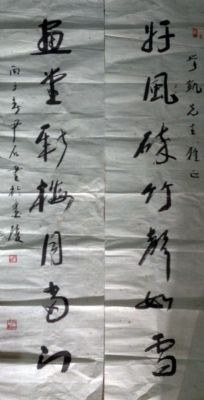 凱先生雅正
好風碎竹聲如雪
畫堂新梅月當門
丙子春尹石書於金陵